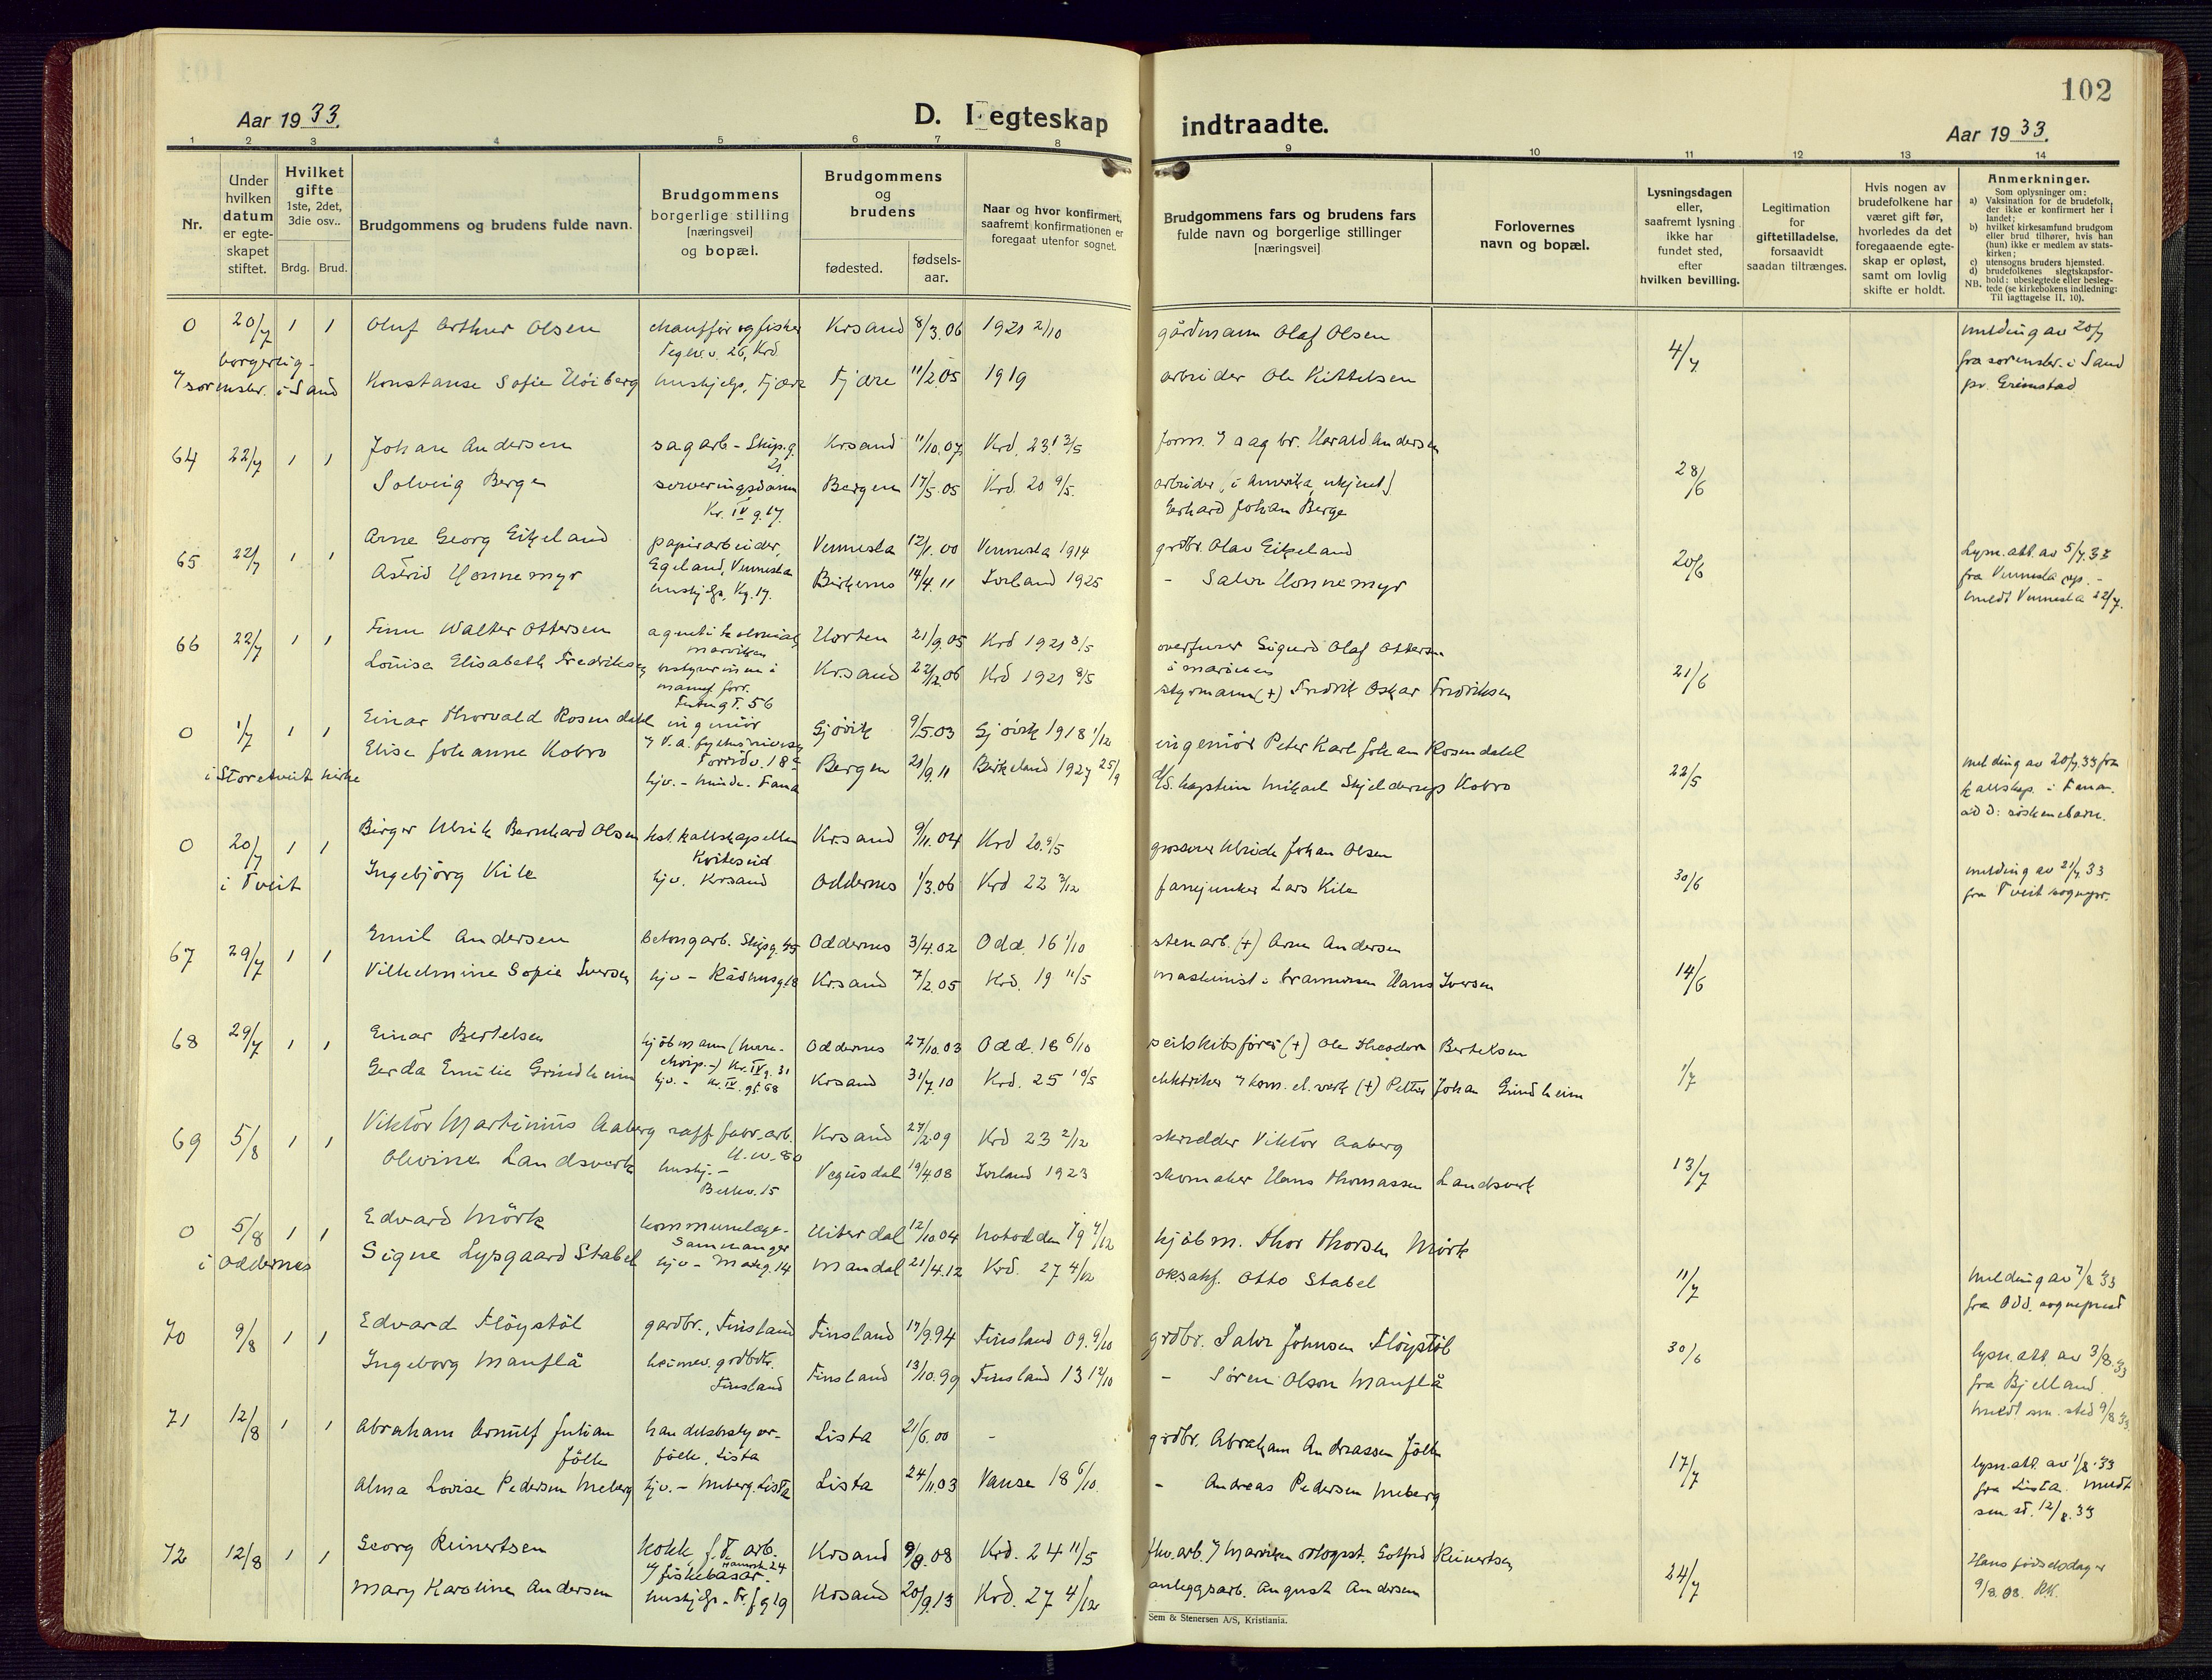 102
Aar 1933.
D. Egteskap indtraadte.
Aar 1933.
1 2 3 4 5 6 7 8 9 10 11 12 13 14
Nr.
Under hvilken datum er egte-skapet stiftet.
Hvilket gifte 1ste, 2det, 3die osv..
Brdg. Brud.
Brudgommens og brudens fulde navn.
Brudgommens borgerlige stilling [næringsvei] og bopæl.
Brudgommens og brudens
fødested. fødsels-aar.
Naar og hvor konfirmert, saafremt konfirmationen er foregaat utenfor sognet.
Brudgommens fars og brudens fars fulde navn og borgerlige stillinger [næringsvei]
Forlovernes navn og bopæl.
Lysningsdagen eller, saafremt lysning ikke har fundet sted, efter hvilken bevilling.
Legitimation for giftetilladelse, forsaavidt saadan tiltrænges.
Hvis nogen av brudefolkene har været gift før, hvorledes da det foregaaende egte-skap er opløst, samt om lovlig skifte er holdt.
Anmerkninger.
Som oplysninger om:
a) Vaksination for de brudefolk, der ikke er konfirmert her i landet;
b) hvilket kirkesamfund brudgom eller brud tilhører, hvis han (hun) ikke er medlem av stats-kirken;
c) utensogns bruders hjemsted.
d) brudefolkenes slegtskapsfor-hold: ubeslegtede eller besleg-
NB. tede (se kirkebokens indledning: Til iagttagelse II, 10).
0 20/7 1 1 Oluf Arthur Olsen chauffør og fisker Krsand 8/3.06 1921 2/10 gårdmann Olaf Olsen 4/7 melding av 20/7
Teglv.v. 26, Krd
borgerlig- fra sorenskr. i Sand
7 sorenskr. i Sand Konstanse Sofie Höiberg hushjelp, Fjære Fjære 11/2.05 1919 arbeider Ole Kittelsen pr. Grimstad
64 22/7 1 1 Johan Andersen sagarb - Skip.g. 21 Krsand 11/10.07 Krd. 23 13/5 form. 7 sag br. Harald Andersen 28/6
Solveig Berge serveringsdame Bergen 17/5.05 Krd. 20 9/5. arbeider (i Amerika, ukjent)
Kr. IV g. 17. Gerhard Johan Berge
65 22/7 1 1 Arne Georg Eikeland papirarbeider, Vennesla 12/1.00 Vennesla 1914 grdbr. Olav Eikeland 20/6 lysn. att. av 5/7.33
Egeland, Vennesla fra Vennesla sp. -
Astrid Honnemyr hushjelp, Kg. 17. Birkenes 14/4.11 Iveland 1925 - Salve Honnemyr meldt Vennesla 22/7.
66 22/7 1 1 Finn Walter Ottersen agent i kolonial Horten 21/9.05 Krd 1921 8/5 overfurer Sigurd Olaf Ottersen 21/6
marviken i marinen
Louise Elisabeth Fredriksen bestyrerinne i Krsand 22/12.06 Krd 1921 8/5 styrmann (+) Fredrik Oskar Fredriksen
manuf. forr.
Festn.gt. 56
0 1/7 1 1 Einar Thorvald Rosendahl ingeniör Gjövik 9/5.03 Gjövik 1918 1/12 ingeniör Peter Karl Johan Rosendahl 22/5 melding av 20/7.33 fra
Torridv. 18
Elise Johanne Kobro hjv. - minde. Fana Bergen 21/9.11 Birkeland 1927 25/9 d/s. kaptein Mikael Skjelderup Kobro kallskap. i Fana.
i Storetveit kirke add: söskenebarn.
0 20/7 1 1 Birger Ulrik Bernhard Olsen hst. kallskapellan Krsand 9/11.04 Krd 20. 9/5 grosserer Ulrik Johan Olsen 30/6 melding av 21/7.33
Kviteseid
i Tveit Ingebjörg Kile hjv. Krsand Oddernes 1/3.06 Krd 22 3/12 fanejunker Lars Kile fra Tveit sognepr.
67 29/7 1 1 Emil Andersen betongarb. Skipsg. 45 Oddernes 3/4.02 Odd. 16 1/10 stenarb. (+) Arne Andersen 14/6
Vilhelmine Sofie Iversen hjv - Rådhusg. 18 Krsand 7/2.05 Krd. 19 11/5 maskinist i brannvesen Hans Iversen
68 29/7 1 1 Einar Bertelsen kjöbmann (herre- Oddernes 27/10.03 Odd. 18 6/10 seilskibsförer (+) Ole Theodor Bertelsen 1/7
ekvip.-) Kr. IV g. 31
Gerda Emilie Grindheim hjv. - Kr. IV. gt. 68 Krsand 31/7.10 Krd. 25 10/5 elektriker 7 kom. el. verk (+) Petter Johan Grindheim
69 5/8 1 1 Viktor Martinius Aaberg raff. fabr. arb. Krsand 27/2.09 Krd 23 2/12 skredder Viktor Aaberg 13/7
U.v. 80
Olevine Landsverk hushj. - Vegusdal 19/4.08 Iveland 1923 skomaker Hans Thomassen Landsverk
Bellev. 15
0 5/8 1 1 Edvard Mörk kommunelæge - Hiterdal 12/10.04 Notodden 19 7/12 kjöbm. Thor Thorsen Mörk 11/7 melding av 7/8 33
Samnanger
i Oddernes Signe Lysgaard Stabel hjv - Markg. 14 Mandal 21/4.12 Krd. 27 4/12 oksahf. Otto Stabel fra Odd. sogneprest
70 9/8 1 1 Edvard Flöystöl gardbr., Finsland Finsland 17/9.94 Finsland 09. 9/10 grdbr. Salve Johnsen Flöystöl 30/6 lysn. att. av 3/8.33
fra Bjelland.
Ingeborg Manflå heimev. grdbdtr. Finsland Finsland 13/10.99 Finsland 13 12/10 - Sören Olson Manflå meldt sm. sted 9/8 33.
71 12/8 1 1 Abraham Arnulf Julian Jölle handelsbestyrer - Lista 21/6.00 - grdbr. Abraham Andreassen Jölle 17/7 lysn. att. av 1/8.33
Jölle, Lista fra Lista. Meldt
Alma Lovise Pedersen Meberg hjv. - Meberg. Lista Lista 24/11.03 Vanse 18 6/10. - Andreas Pedersen Meberg sm st. 12/8.33
72 12/8 1 1 Georg Reinertsen kokk, f. T. arb. Krsand 9/8.08 Krd. 24 11/5 fhv. arb. 7 Marviken Gotfred Reinertsen 24/7 Hans födselsdag er
7 fiskebasar.
Mary Karoline Andersen hushjelp - Tr. f g 19 Krsand 20/9.13 Krd. 27 4/12 anleggsarb. August Andersen 9/8.08.
Sem & Stenersen A/S, Kristiania.